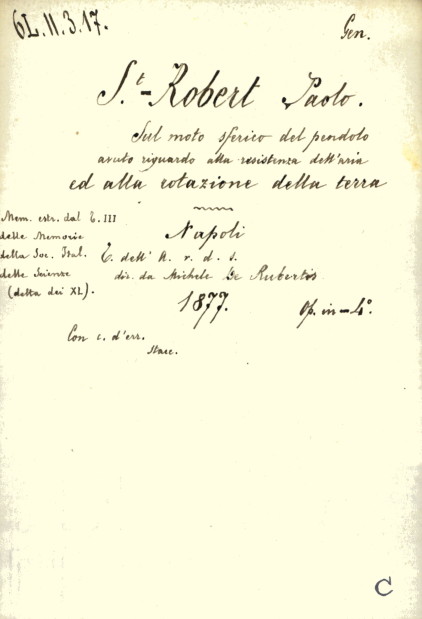 6L.II.3.17.
Gen.
S.t-Robert Paolo.
Sul moto sferico del pendolo
avuto riguardo alla resistenza dell'aria
ed alla rotazione della terra
Mem. estr. dal T. III
delle Memorie
della Soc. Ital.
delle Scienze
(detta dei XL).
Napoli
T. dell' A. r. d. s.
dir. da Michele De Rubertis
1877.
Op. in-4º.
Con c. d'err.
Stacc.
C